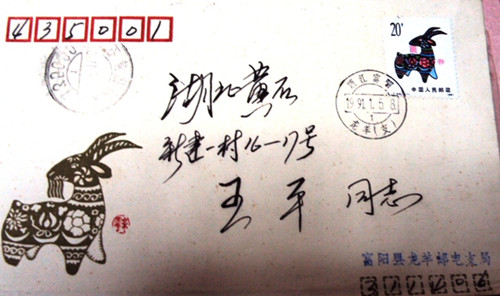 435001
20分
中国人民邮政
浙江富阳
1991.1.5.8
龙羊(支)
湖北黄石
新建一村16-17号
王平 同志
富阳县龙羊邮电支局